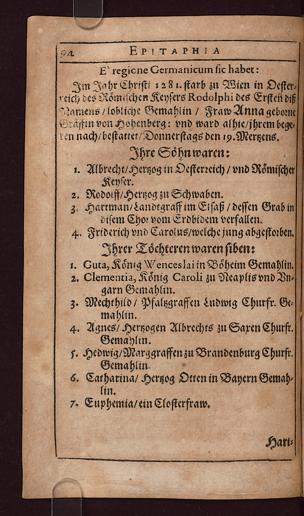 94 EPITAPHIA
E' regione Germanicum sic habet:
Im Jahr Christi 1281. starb zu Wien in Oester-
reich des Römischen Keysers Rodolphi des Ersten diß
Namens / lobliche Gemahlin / Fraw Anna geborne
Gräffin von Hohenberg: vnd ward alhie / ihrem bege-
ren nach / bestattet / Donnerstags den 19. Mertzens.
Ihre Söhn waren:
1. Albrecht / Hertzog in Oesterreich / vnd Römischer
Keyser.
2. Rodolff / Hertzog zu Schwaben.
3. Hartman / Landtgraff im Elsaß / dessen Grab in
disem Chor vom Erdbidem verfallen.
4. Friderich vnd Carolus / welche jung abgestorben.
Ihrer Töchteren waren siben:
1. Guta, König Wenceslai in Böheim Gemahlin.
2. Clementia, König Caroli zu Neaplis vnd Vn-
garn Gemahlin.
3. Mechthild / Pfaltzgraffen Ludwig Churfr. Ge-
mahlin.
4. Agnes / Hertzogen Albrechts zu Saxen Churfr.
Gemahlin.
5. Hedwig / Marggraffen zu Brandenburg Churfr.
Gemahlin.
6. Catharina / Hertzog Otten in Bayern Gemah-
lin.
7. Euphemia / ein Closterfraw.
Hart-